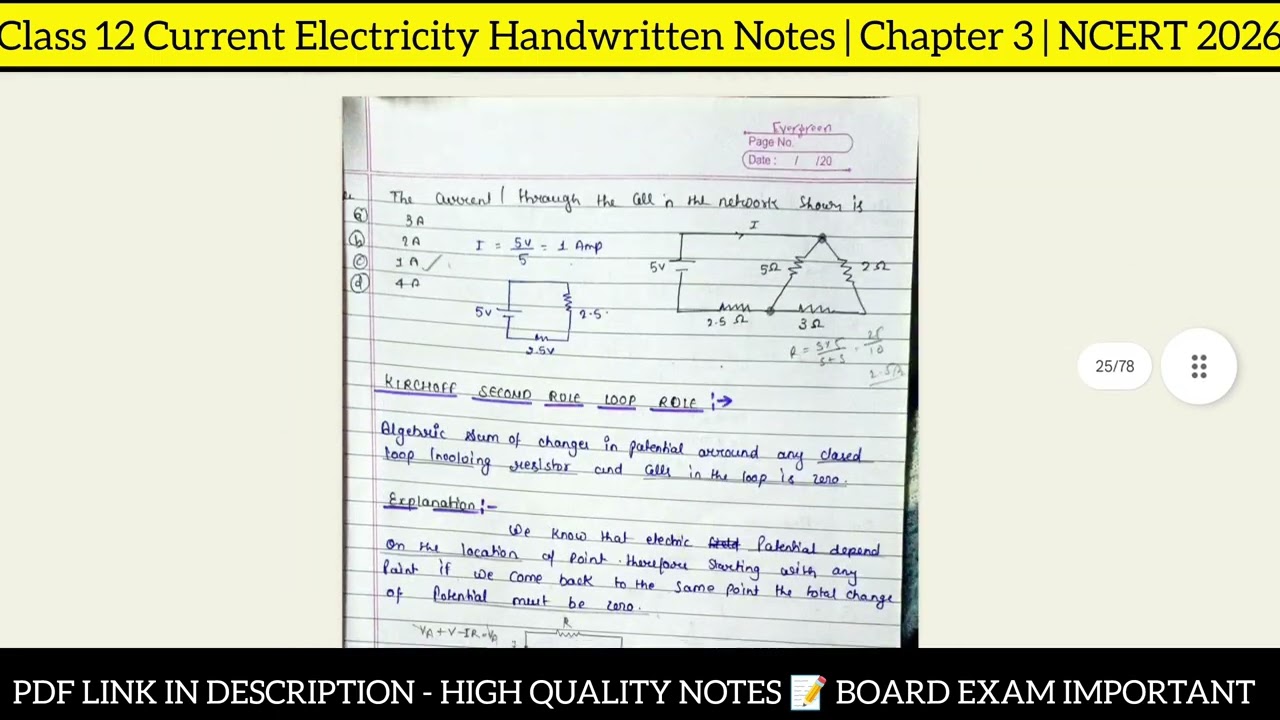 Class 12 Current Electricity Handwritten Notes | Chapter 3 | NCERT 2026
Evergreen
Page No.
Date : / /20
The current I through the Cell in the network shown is
(a) 3A
(b) 2A
(c) 1A ✓
(d) 4A
I = 5V/5 = 1 Amp
5V
2.5
2.5V
I
5V
5Ω
2Ω
2.5 Ω
3Ω
R = 5×5/5+5 = 25/10
2.5Ω
25/78
KIRCHOFF SECOND RULE LOOP RULE :→
Algebric sum of changes in potential arround any closed
loop Involving resistor and Cells in the loop is zero.
Explanation :-
We know that electric Potential depend
on the location of point. therefore starting with any
Point if we come back to the same point the total change
of Potential must be zero.
VA + V - IR = VA
R
PDF LINK IN DESCRIPTION - HIGH QUALITY NOTES 📝 BOARD EXAM IMPORTANT